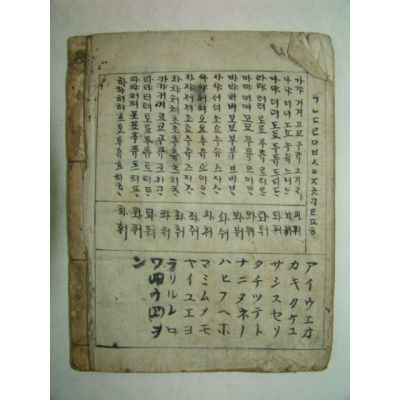 ㄱㄴㄷㄹㅁㅂㅅㅇㅈㅊㅋㅌㅍㅎ
가갸거겨고교구규그기ᄀᆞ
나냐너녀노뇨누뉴느니ᄂᆞ
다댜더뎌도됴두듀드디ᄃᆞ
라랴러려로료루류르리ᄅᆞ
마먀머며모묘무뮤므미ᄆᆞ
바뱌버벼보뵤부뷰브비ᄇᆞ
사샤서셔소쇼수슈스시ᄉᆞ
아야어여오요우유으이ᄋᆞ
자쟈저져조죠주쥬즈지ᄌᆞ
차챠처쳐초쵸추츄츠치ᄎᆞ
카캬커켜코쿄쿠큐크키ᄏᆞ
타탸터텨토툐투튜트티ᄐᆞ
파퍄퍼펴포표푸퓨프피ᄑᆞ
하햐허혀호효후휴흐히ᄒᆞ
과궈
놔눠
돠둬
롸뤄
뫄뭐
봐붜
솨숴
와워
좌줘
촤춰
콰쿼
톼퉈
퐈풔
화훠
アイウエオ
カキクケコ
サシスセソ
タチツテト
ナニヌネノ
ハヒフヘホ
マミムメモ
ヤイユエヨ
ラリルレロ
ワヰウヱヲ
ン